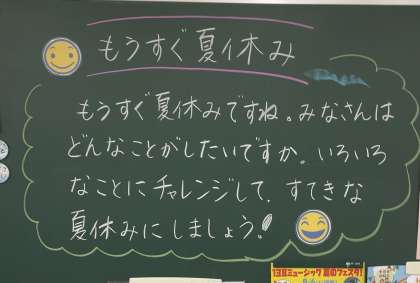 もうすぐ夏休み
もうすぐ夏休みですね。みなさんは
どんなことがしたいですか。いろいろ
なことにチャレンジして、すてきな
夏休みにしましょう!